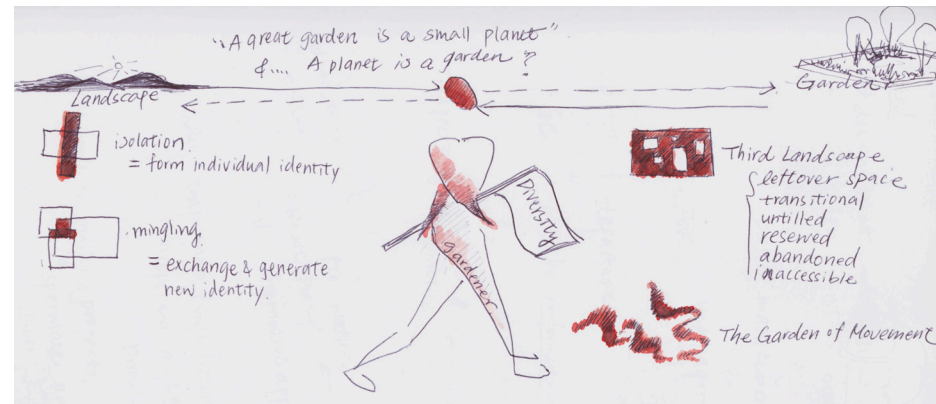 "A great garden is a small planet"
&.... A planet is a garden?
Landscape
Garden
isolation.
= form individual identity
mingling.
= exchange & generate
new identity.
Diversity
gardener
Third Landscape
leftover space
transitional
untilled
reserved
abandoned
inaccessible
The Garden of Movement